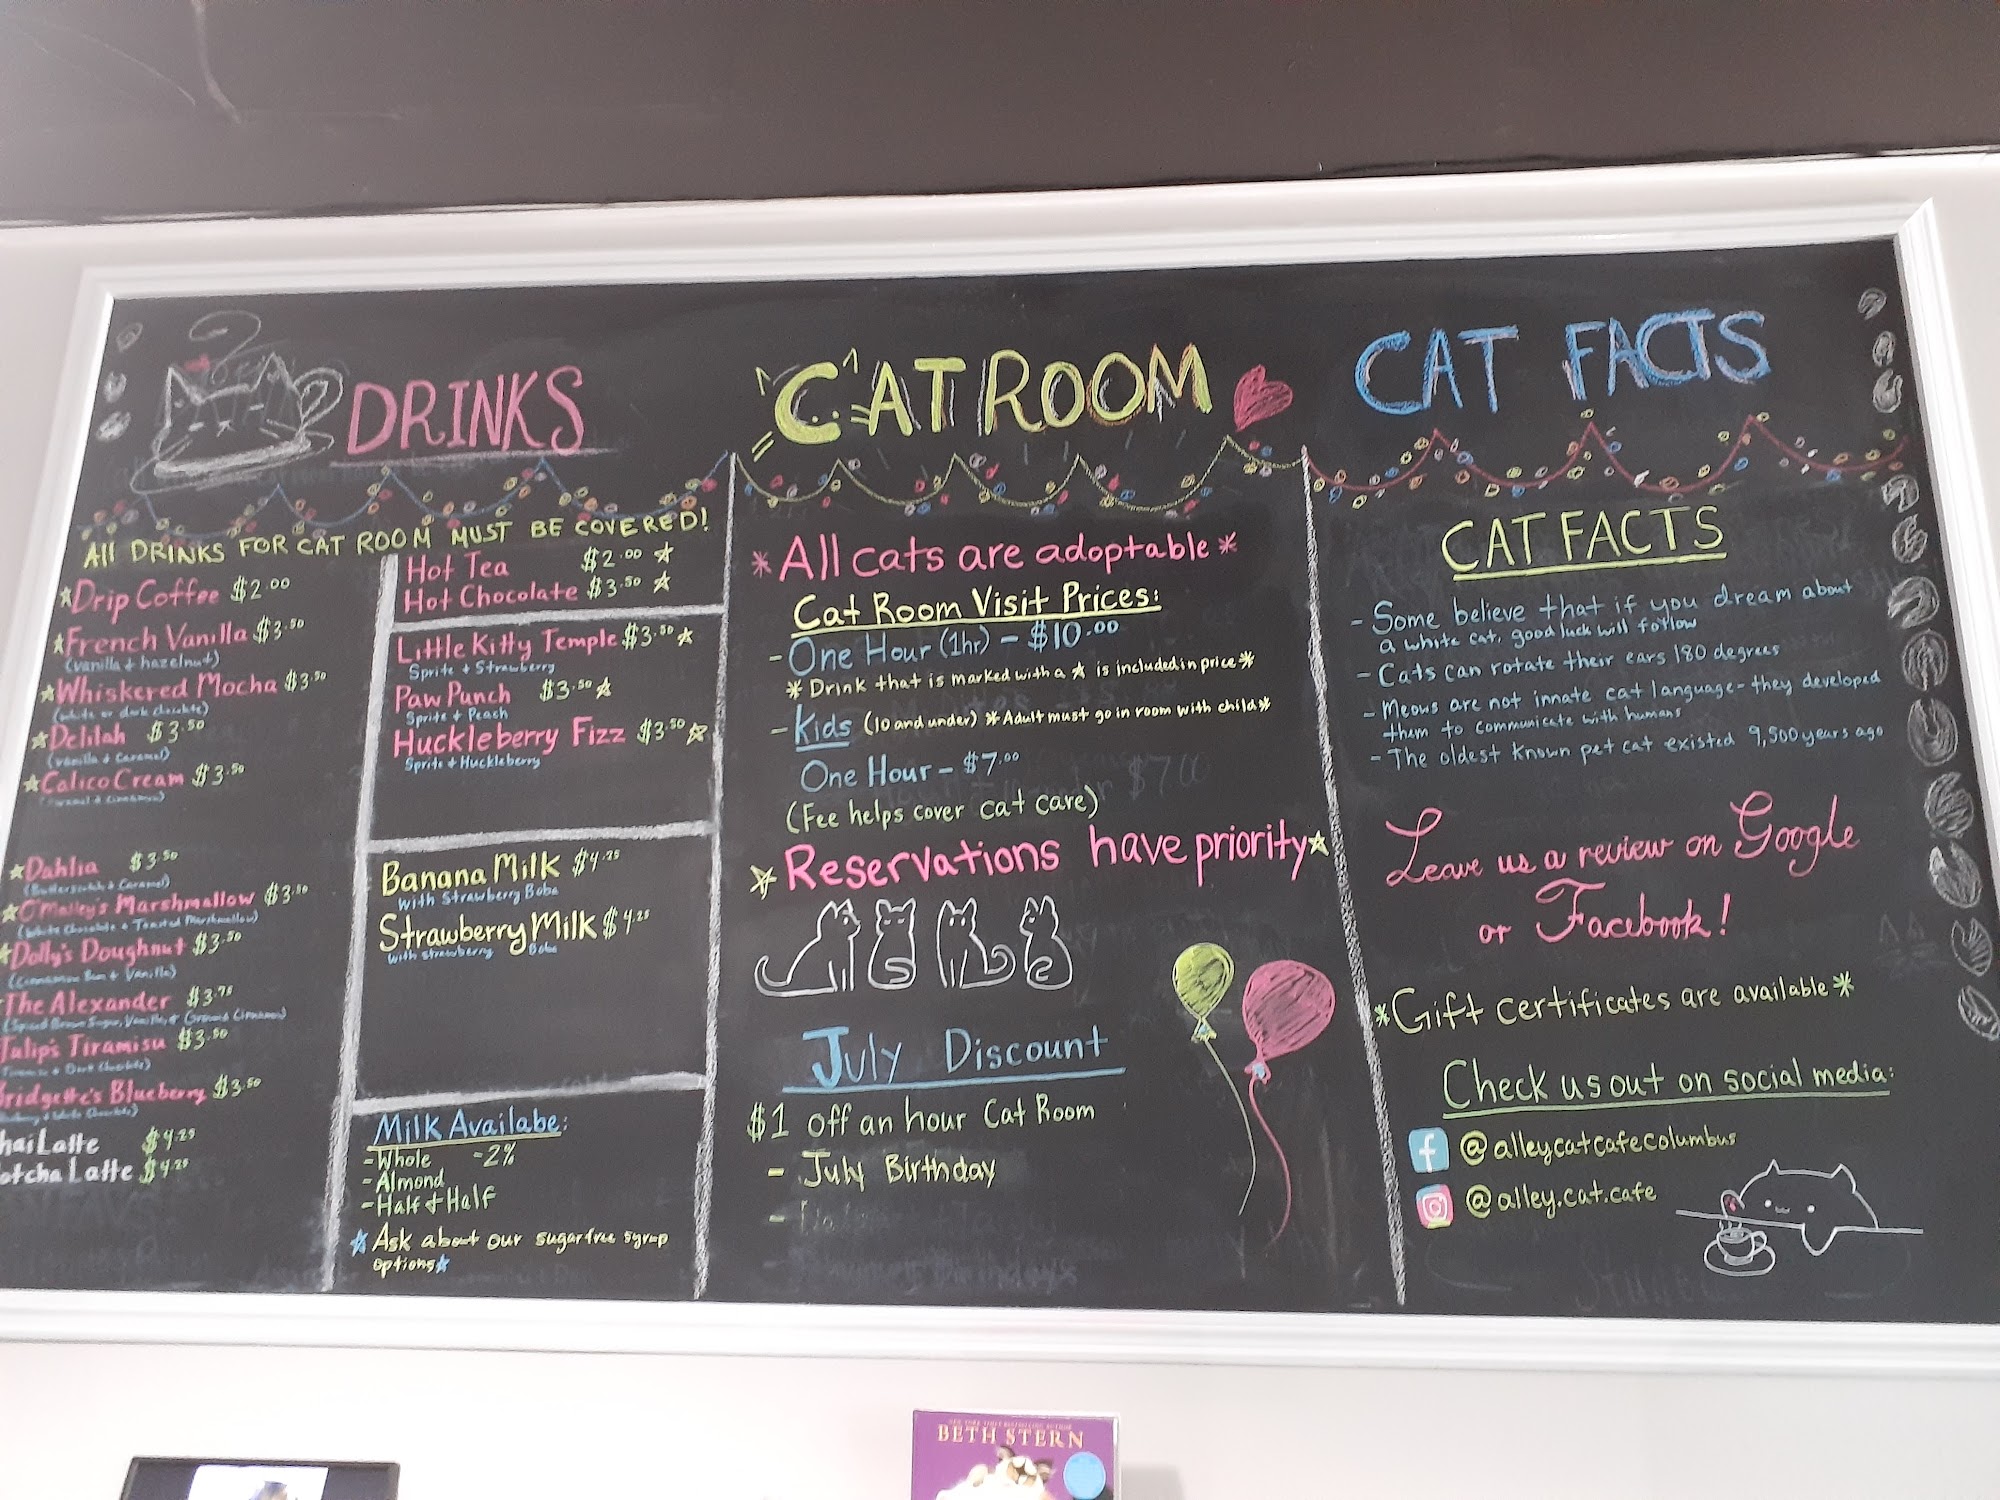 DRINKS
All DRINKS FOR CAT ROOM MUST BE COVERED!
☆Drip Coffee $2.00
☆French Vanilla $3.50
(vanilla + hazelnut)
☆Whiskered Mocha $3.50
(white or dark chocolate)
☆Delilah $3.50
(vanilla & Caramel)
☆Calico Cream $3.50
(Caramel & Cinnamon)
☆Dahlia $3.50
(Butterscotch & Caramel)
☆O'Malley's Marshmallow $3.50
(White Chocolate + Toasted Marshmallow)
☆Dolly's Doughnut $3.50
(Cinnamon Bun & Vanilla)
The Alexander $3.75
(Spiced Brown Sugar, Vanilla, & Ground Cinnamon)
Tulip's Tiramisu $3.50
Tiramisu & Dark Chocolate)
Bridgette's Blueberry $3.50
hai Latte $4.25
tcha Latte $4.25
Hot Tea $2.00 ☆
Hot Chocolate $3.50 ☆
Little Kitty Temple $3.50 ☆
Sprite & Strawberry
Paw Punch $3.50 ☆
Sprite & Peach
Huckleberry Fizz $3.50 ☆
Sprite & Huckleberry
Banana Milk $4.25
with Strawberry Boba
Strawberry Milk $4.25
with strawberry Boba
Milk Availabe:
-Whole -2%
-Almond
-Half & Half
☆Ask about our sugarfree syrup
options☆
CAT ROOM
*All cats are adoptable*
Cat Room Visit Prices:
-One Hour (1hr) - $10.00
*Drink that is marked with a ☆ is included in price*
-Kids (10 and under) *Adult must go in room with child*
One Hour - $7.00
(Fee helps cover cat care)
☆Reservations have priority☆
July Discount
$1 off an hour Cat Room
- July Birthday
CAT FACTS
CAT FACTS
- Some believe that if you dream about
a white cat, good luck will follow
- Cats can rotate their ears 180 degrees
- Meows are not innate cat language - they developed
them to communicate with humans
- The oldest known pet cat existed 9,500 years ago
Leave us a review on Google
or Facebook!
*Gift certificates are available*
Check us out on social media:
f @alleycatcafecolumbus
@alley.cat.cafe
BETH STERN